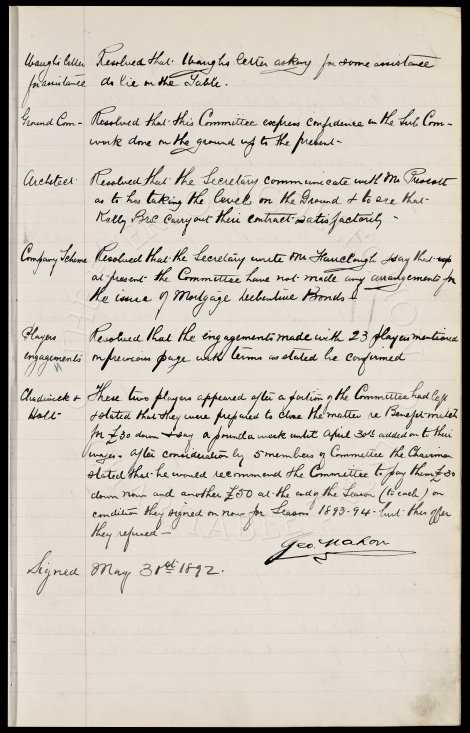 Waugh's letter Resolved that Waughs letter asking for some assistance
for assistance do lie on the Table.
Ground Com- Resolved that this Committee express confidence in the Sub Com-
work done on the ground up to the present-
Architect Resolved that the Secretary communicate with Mr Prescott
as to his taking the levels on the Ground & to see that
Kelly Bro carry out their contract satisfactorily -
Company Scheme Resolved that the Secretary write Mr Fairclough & say that
at present the Committee have not made any arrangements for
the issue of Mortgage Debenture Bonds
Players Resolved that the engagements made with 23 players mentioned
engagements on previous page with terms as stated be confirmed
Chadwick & These two players appeared after a portion of the Committee had left
Holt- & stated that they were prepared to close the matter re Benefit match
for £30 down & say a pound a week until April 30th added on to their
wages - After consideration by 5 members of Committee the Chairman
stated that he would recommend the Committee to pay them £30
down now and another £50 at the end of the Season (to each) on
condition they signed on now for Season 1893-94 - but this offer
they refused -
Geo. Mahon
Signed May 31st 1892.